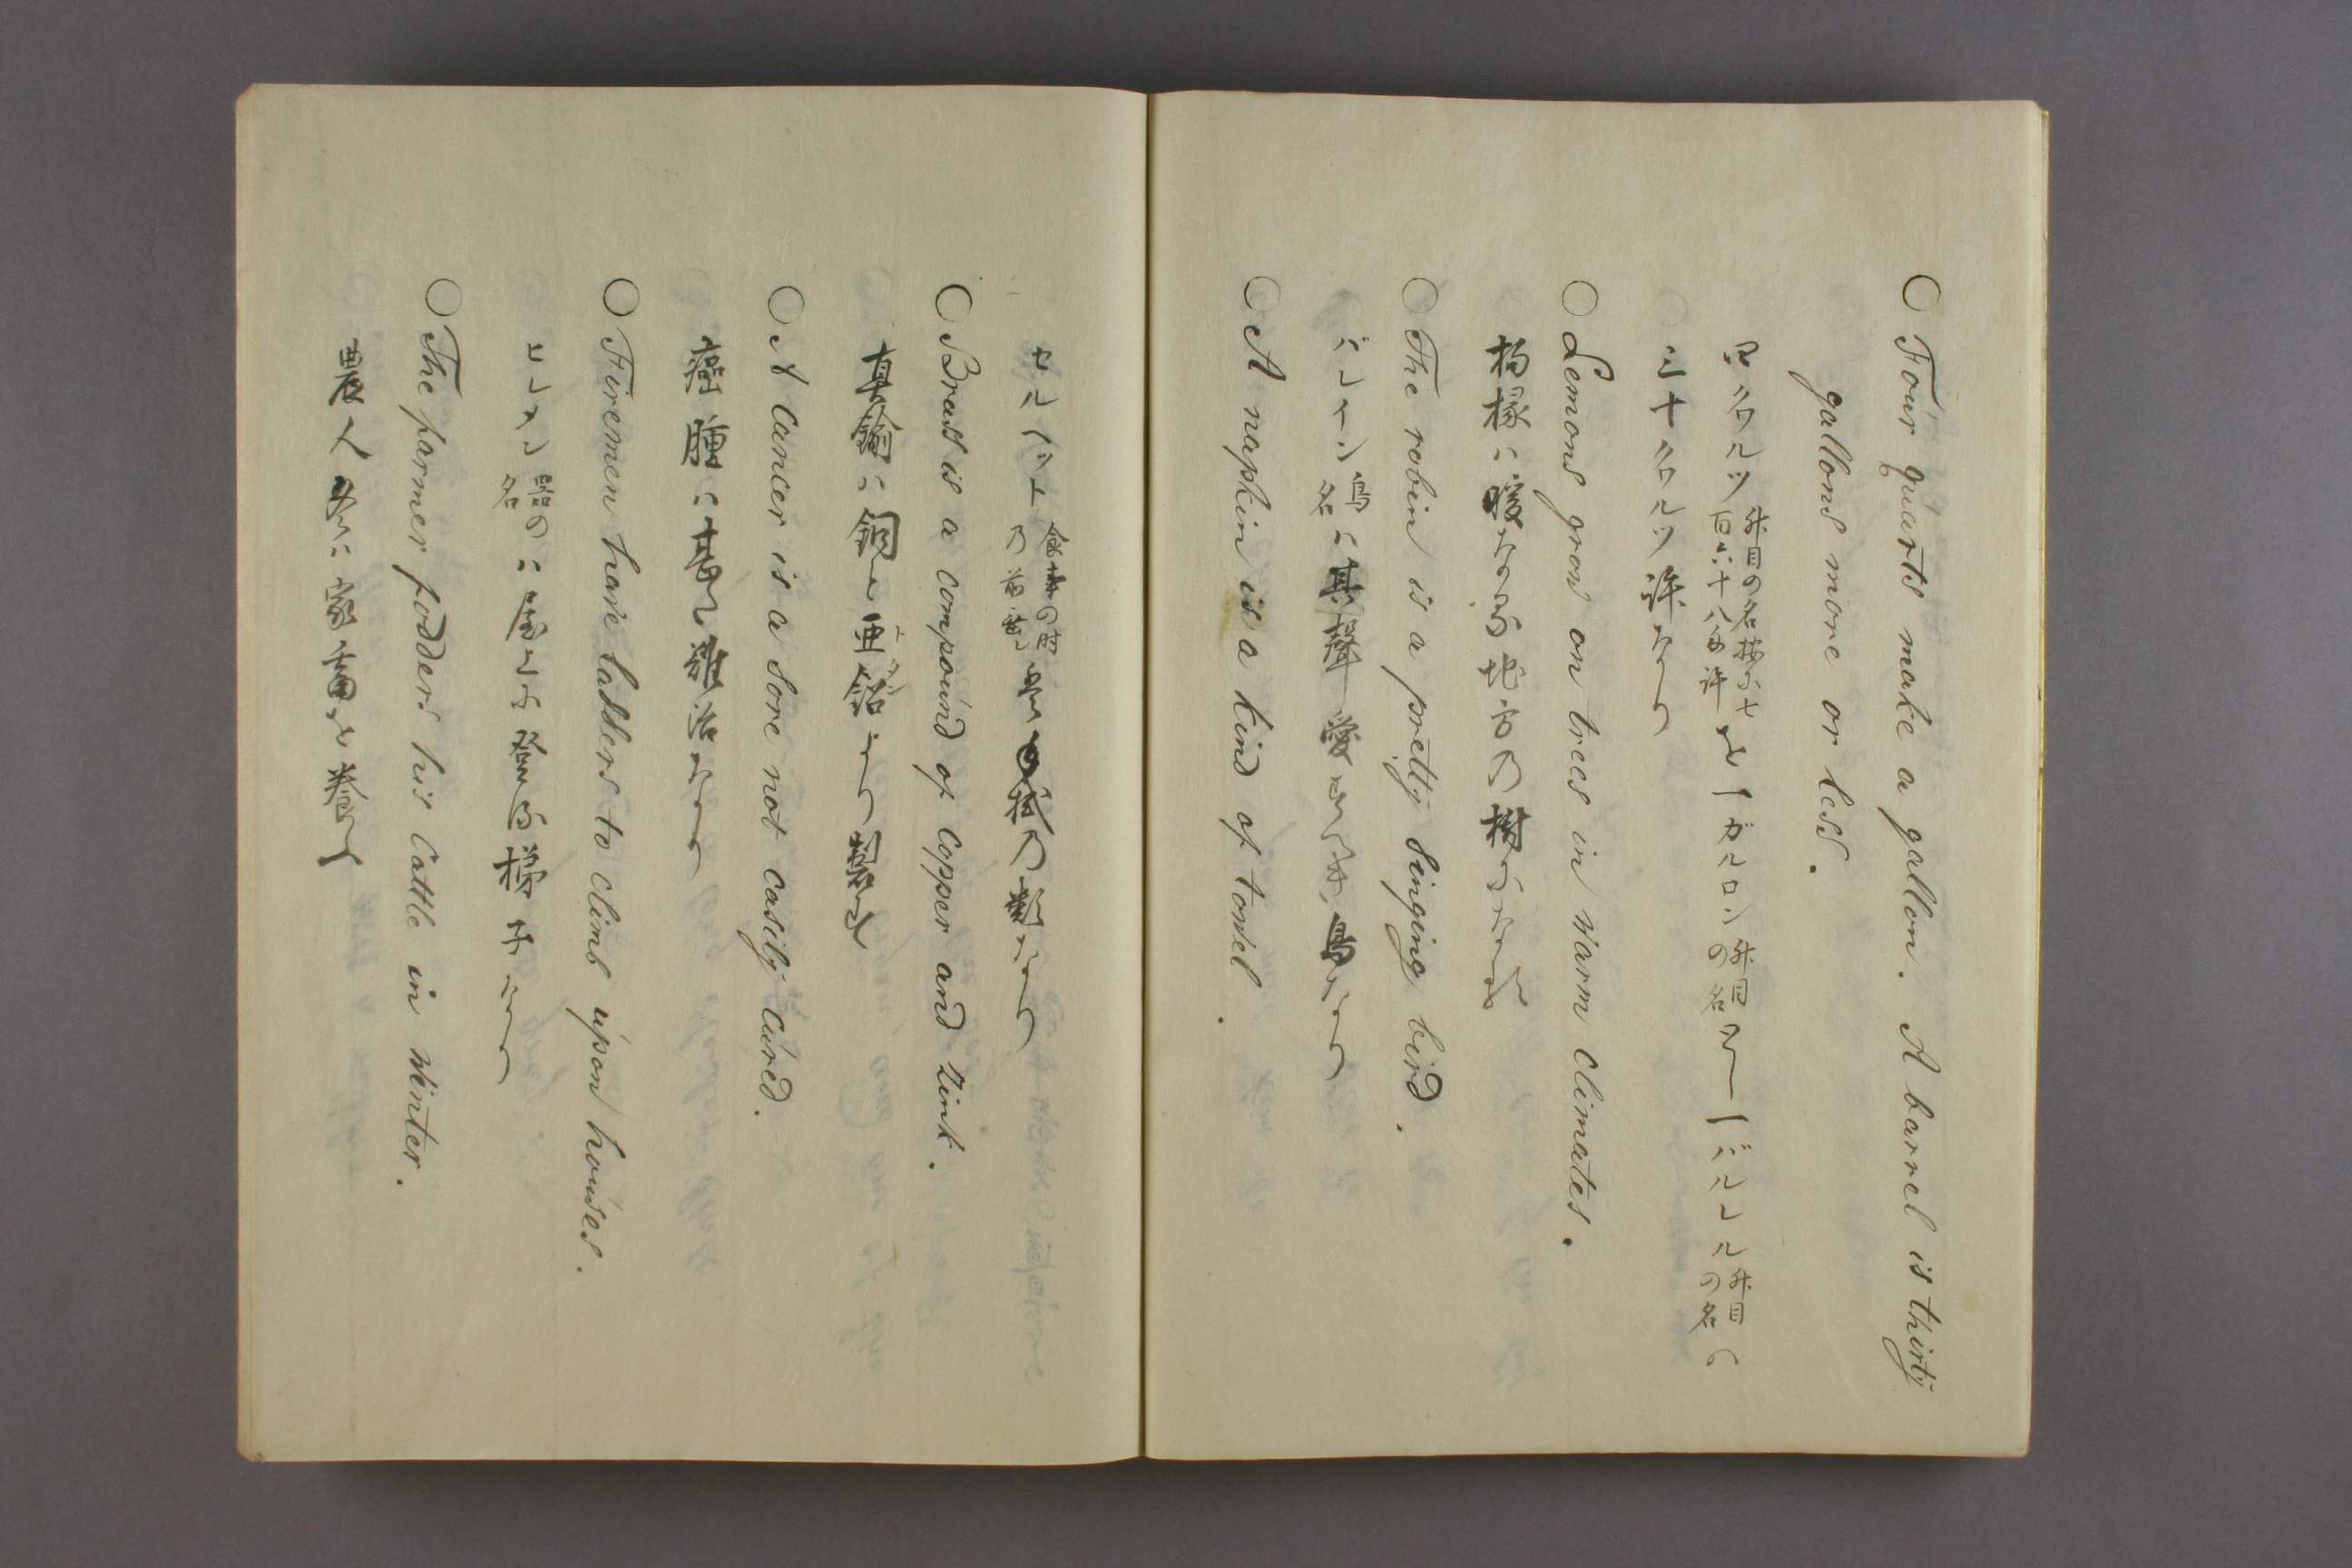 ○ Four quarts make a gallon. A barrel is thirty
gallons more or less.
四クワルツ 升目の名按ルニ七百六十八匁許 を一ガルロン 升目の名 又一バルレル 升目の名 ハ
三十クワルツ許なり
○ Lemons grow on trees in warm climates.
枸櫞ハ暖なる地方の樹になる
○ The robin is a pretty singing bird.
鳥名 ハ其聲愛すへき鳥なり
○ A napkin is a kind of towel.
セルヘット 食事の時の前垂 ハ手拭の類なり
○ Brass is a compound of copper and zink.
真鍮ハ銅と亜鉛トタンより製す
○ A cancer is a sore not easily cured.
癌腫ハ甚し難治なり
○ Firemen have ladders to climb upon houses.
器の名 ハ屋上に登る梯子なり
○ The farmer fodders his cattle in winter.
農人冬ハ家畜を養ふ